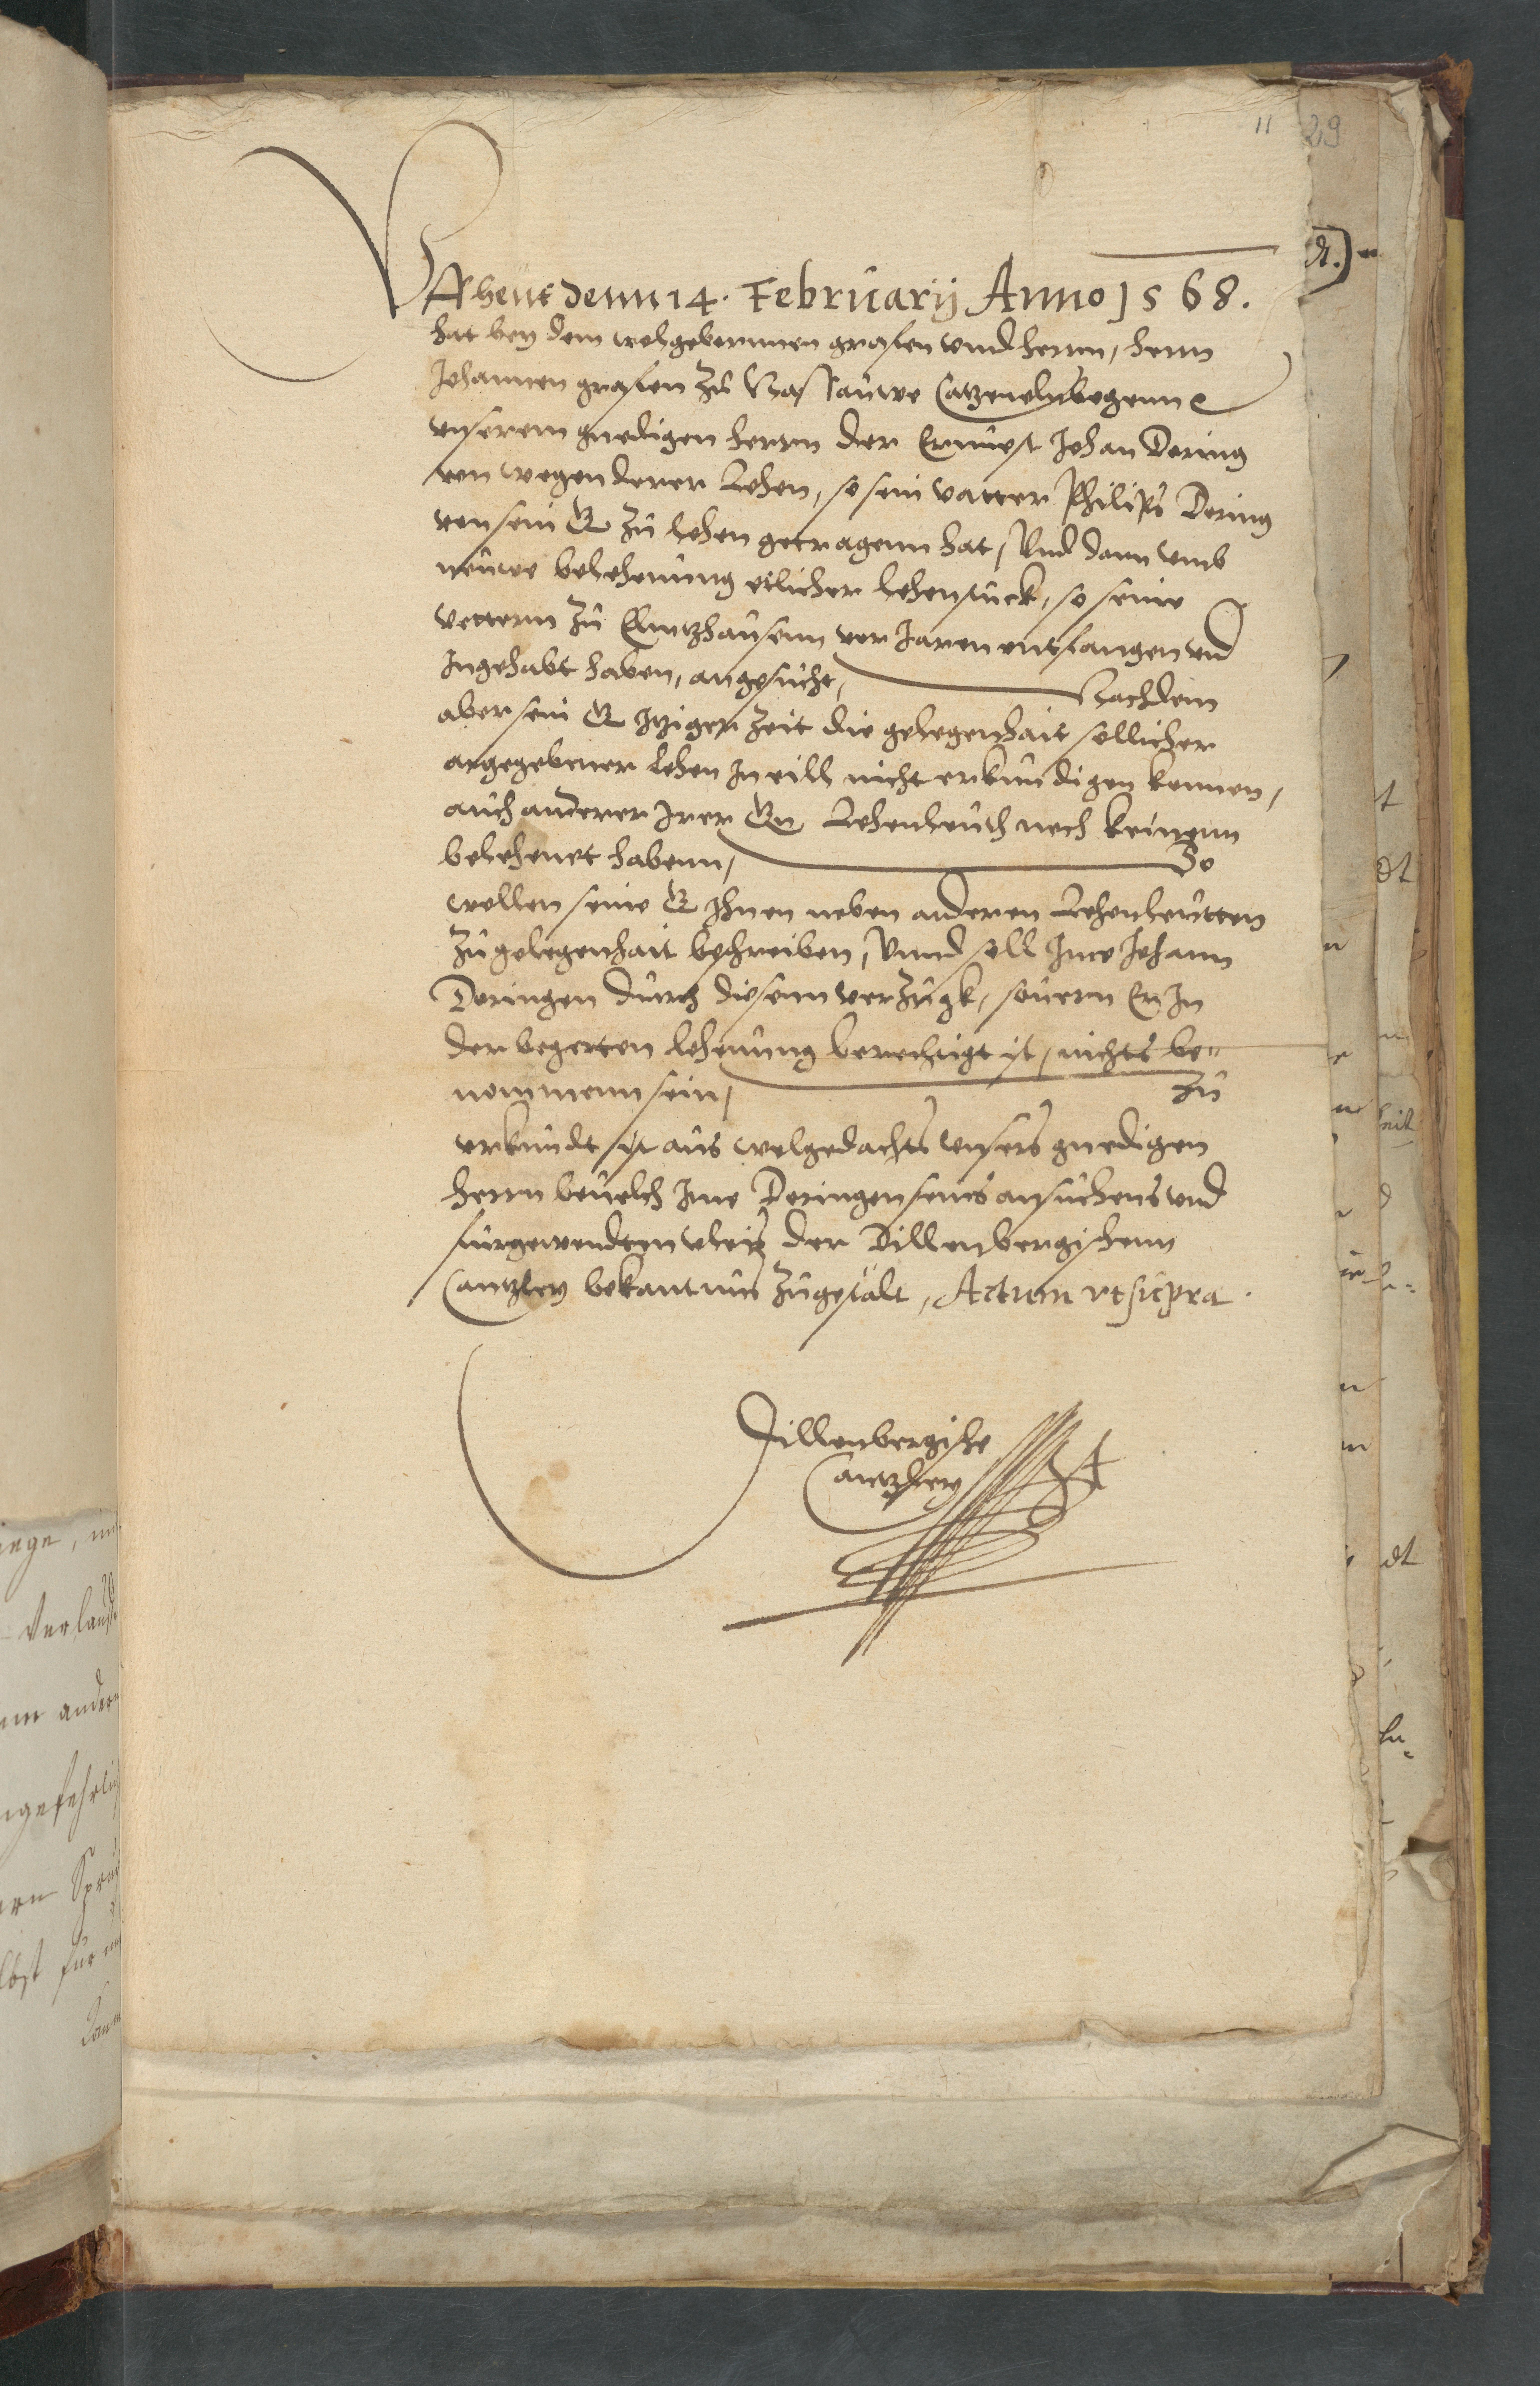 11 29
Uff heut denn 14. Februarij Anno 1568.
hat bey dem wolgebornnen grafen vnnd herrnn, herrn
Johannen grafen zu Nassauwe Catzenelnbogenn e
vnserem gnedigen herrnn der Ernuest Johan Doring
von wegen derer Lehen, so sein vatter Philips Doring
von sein G zu lehen getragenn hat, Und dann vmb
neuwe belehenung etlicher lehenstuck, so seine
vettern zu Elnhausenn vor Jaren entfangen vnd
Ingehabt haben, angesucht, Nachdem
aber sein G itziger Zeit die gelegenhait sollicher
angegebener lehen In eill nicht erkundigen konnen,
auch anderer Irer Gn Lehenleuth noch keinenn
belehenet habenn, So
wollen seine G Ihnen neben anderen Lehenleutten
zu gelegenhait beschreiben, Vnnd soll Ime Johann
Doringen durch diesenn verzugk, souern Er In
der begerten lehenung berechtigt ist, nichts be-
nommenn sein, Zu
vrkundt ist aus wolgedachts vnsers gnedigen
herrn beuelch Ime Doringen seines ansuchens vnd
furgewendten vleis der Dillenbergischenn
Cantzley bekantnus zugestalt, Actum vt supra.
Dillenbergische
Cantzley